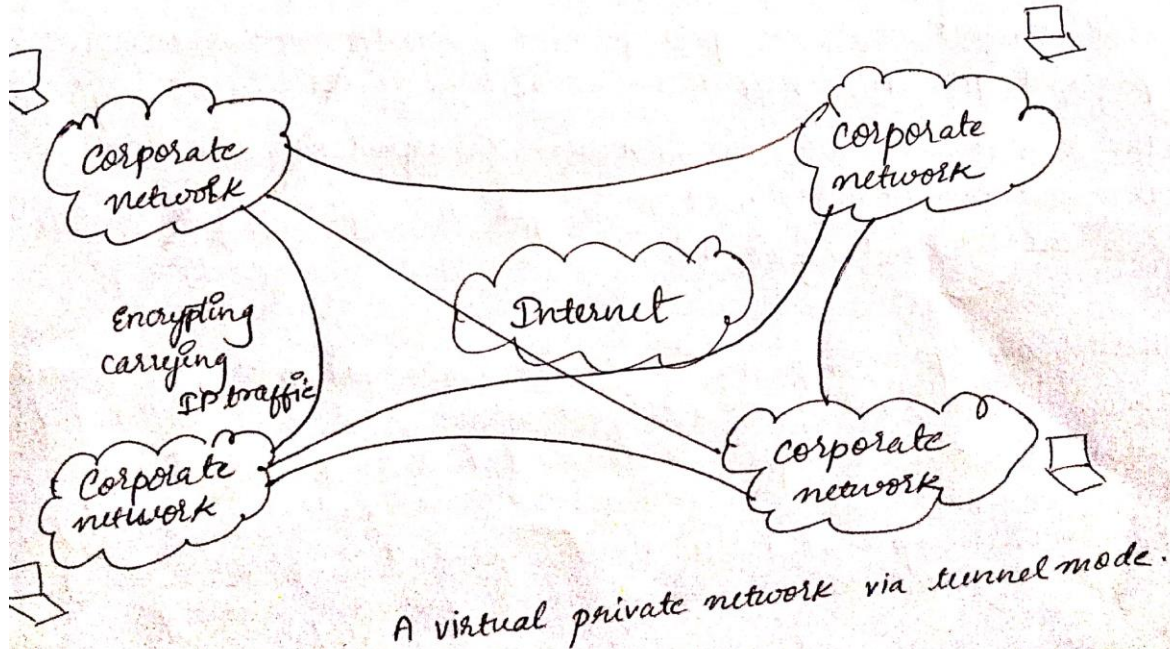 Corporate
network
Corporate
network
Internet
Encrypting
carrying
IP traffic
Corporate
network
Corporate
network
A virtual private network via tunnel mode.